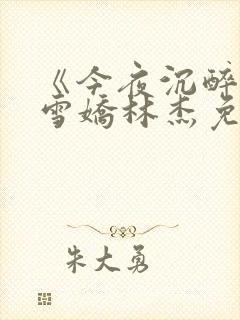 《今夜沉醉
雪娇林杰免
朱大勇